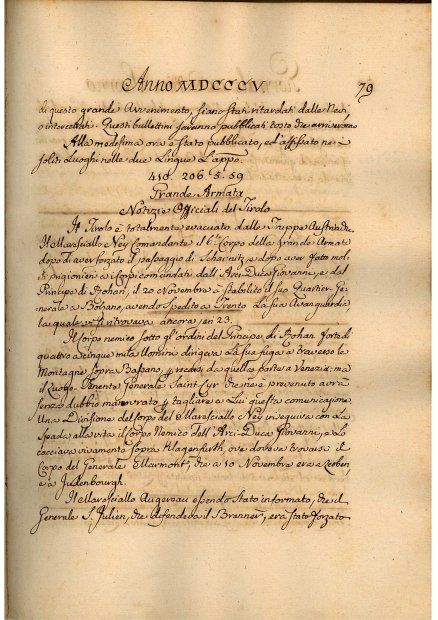 Anno MDCCCV. 79
di questo grande Avvenimento, siano stati ritardati dalle Nevi
o intercettati. Questi bullettini saranno pubblicati tosto che arriveranno
Alla medesima ora è stato pubblicato, ed affissato ne
soliti Luoghi nelle due Lingue L'appo.
410. 206. 5. 59
Grande Armata
Notizie Officiali del Tirolo
Il Tirolo è totalmente evacuato dalle Truppe Austriache.
Il Maresciallo Ney Comandante il 6to. Corpo della Grande Armata
dopo di aver forzato il passaggio di Scharnitz, e dopo aver fatto molti
prigionieri a Corpi comandati dall'Arci-Duca Giovanni, e dal
Principe di Rohan, il 20 Novembre à stabilito il suo Quartier Ge:
nerale a Bolzano, avendo spedito a Trento la sua Avanguardia
la quale vi si ritrovava ancora jeri 23.
Il corpo nemico sotto gl'ordini del Principe di Rohan forte di
quattro a cinque mila Uomini dirigeva la sua fuga a traverso le
Montagne sopra Bassano, per recarsi da quella parte a Venezia: ma
il Luogo-Tenente Generale Saint-Cyr che ne è prevenuto avrà
senza dubbio manovrato per tagliare a Lui questa comunicazione
Una Divisione del Corpo del Maresciallo Ney inseguiva con la
Spada alla vita il Corpo Nemico dell'Arci-Duca Giovanni, e lo
cacciava vivamente sopra Klagenfurth, ove doveva trovarsi il
Corpo del Generale Marmont, che a 10 Novembre era a Leoben
e a Judenbourgh.
Il Maresciallo Augereau essendo stato informato, che il
Generale S. Julien, che difendeva il Brenner, era stato forzato